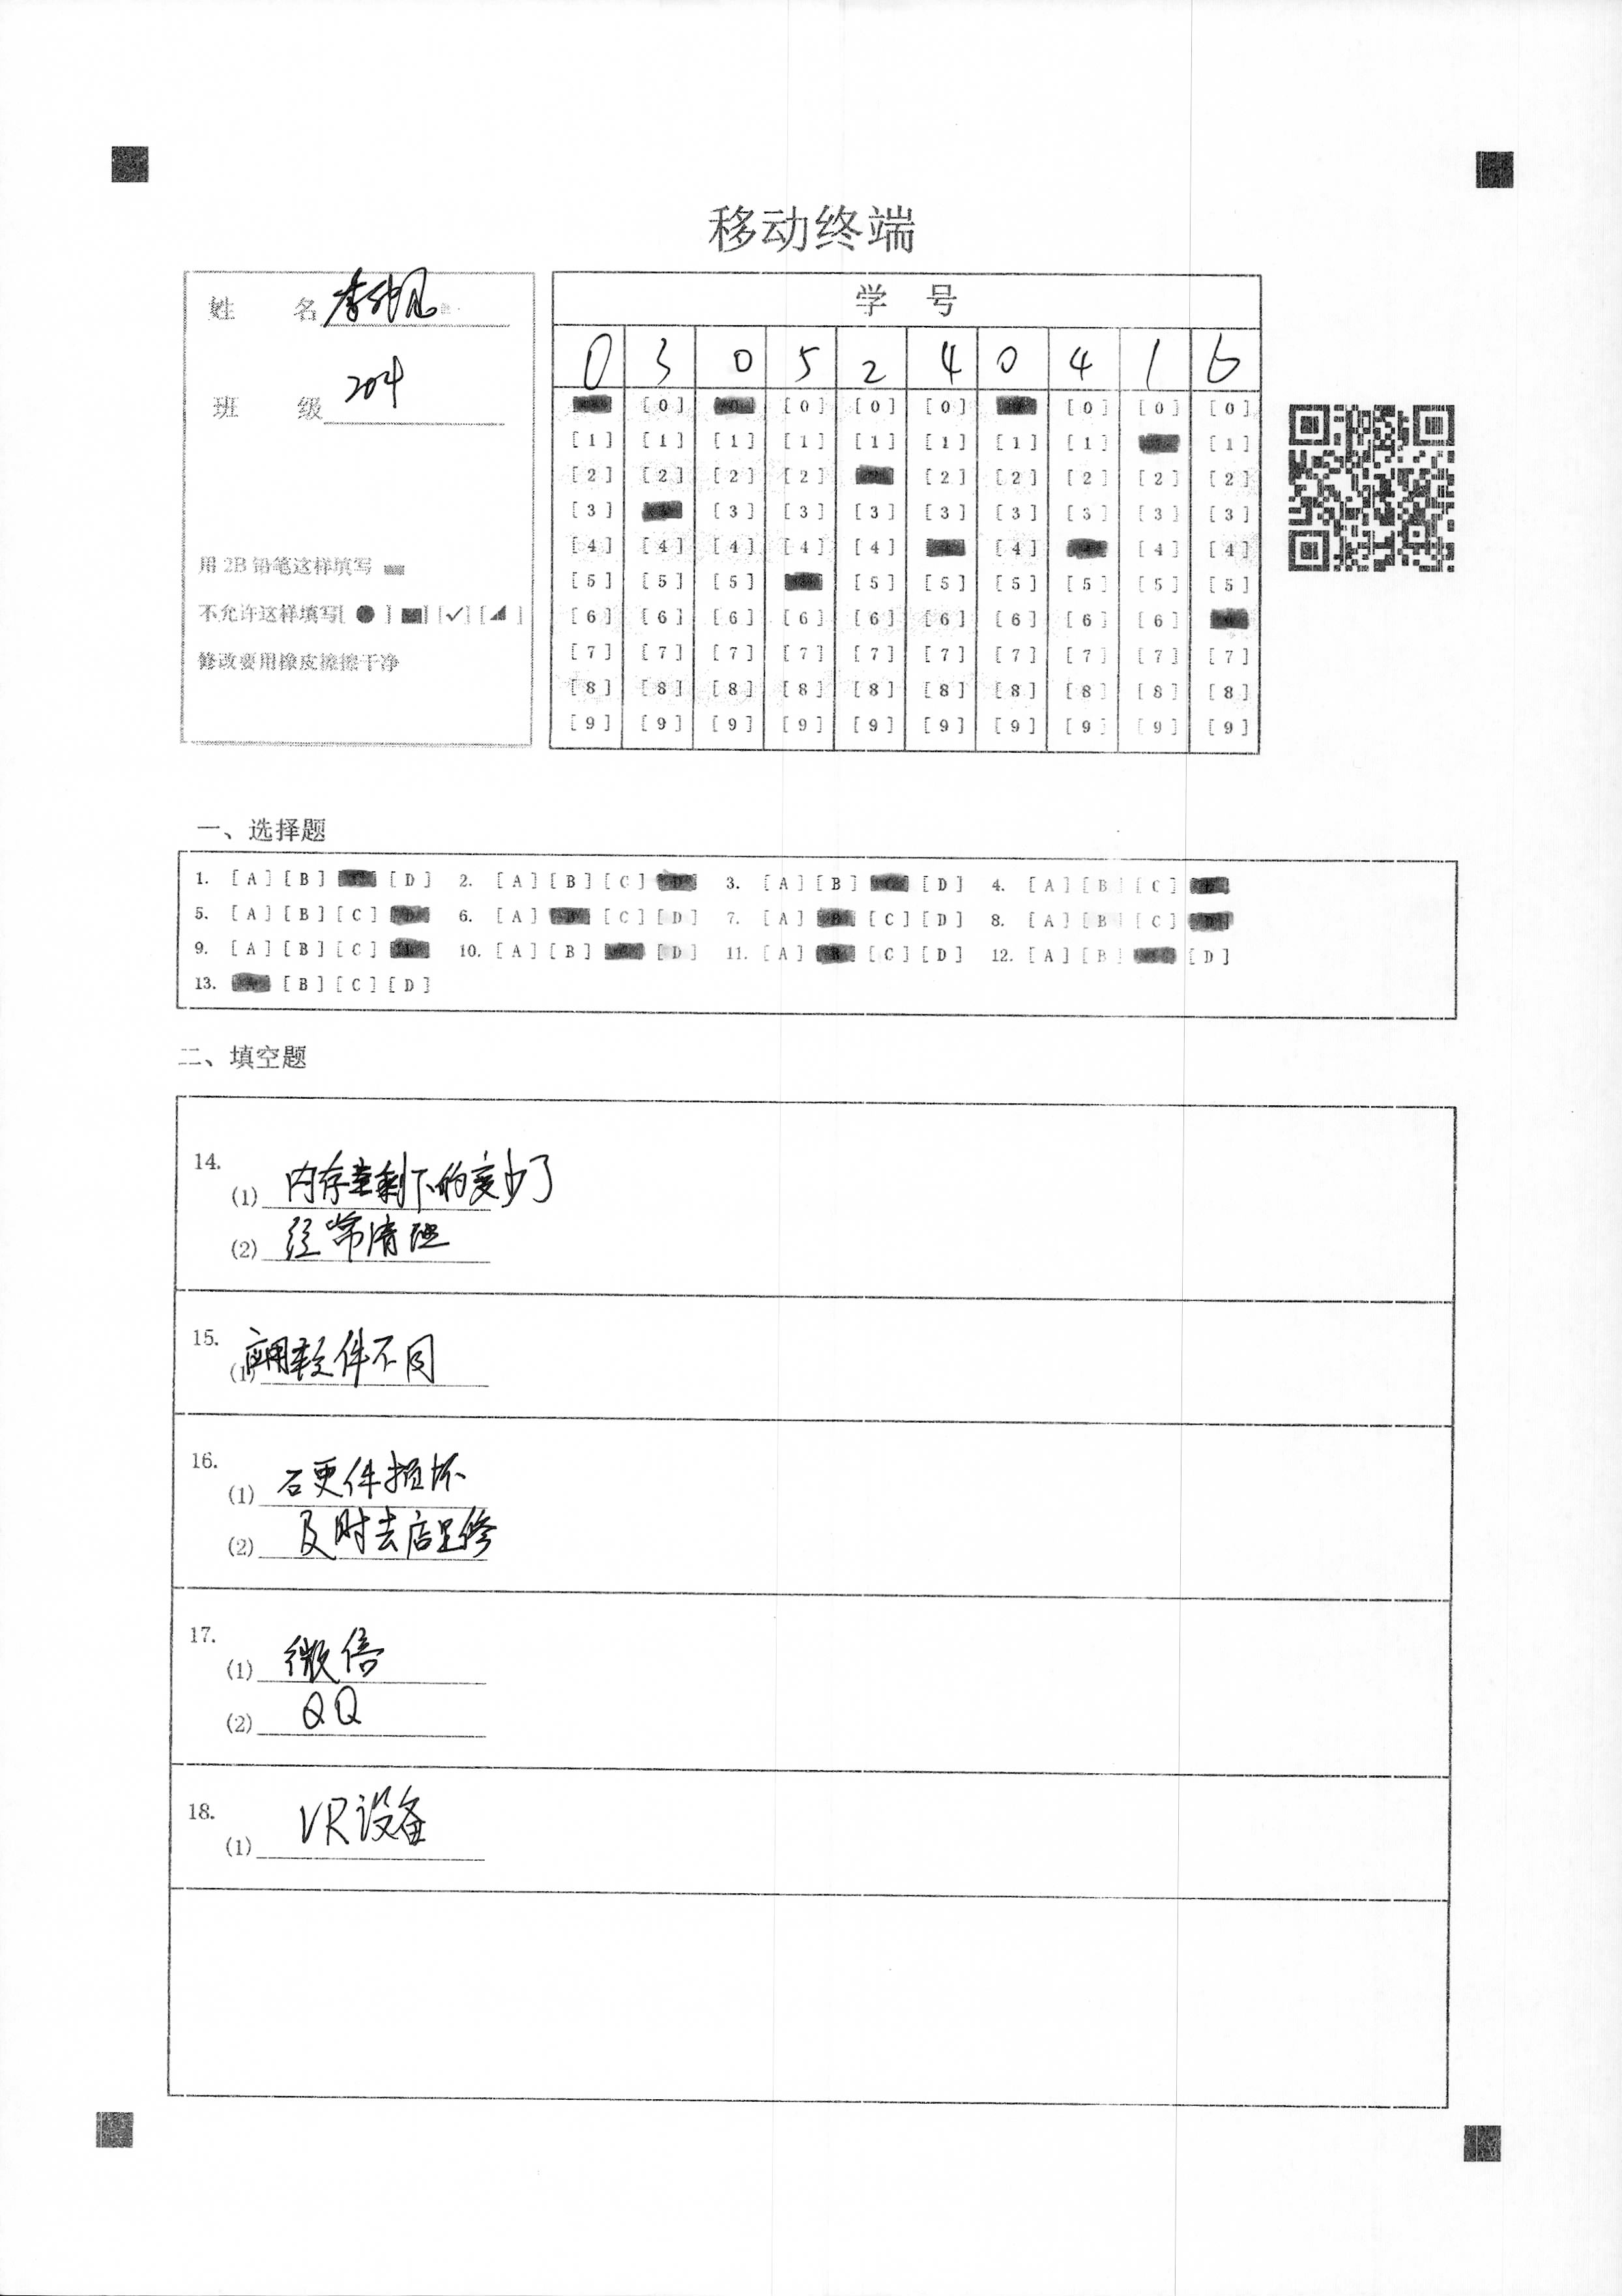 移动终端
姓 名 李
班 级 204
用 2B 铅笔这样填写
不允许这样填写[ ● ] [■] [✓] [◢ ]
修改要用橡皮擦擦干净
学 号
0 3 0 5 2 4 0 4 1 6
[0] [0] [0] [0] [0] [0] [0]
[1] [1] [1] [1] [1] [1] [1] [1] [1]
[2] [2] [2] [2] [2] [2] [2] [2] [2]
[3] [3] [3] [3] [3] [3] [3] [3] [3]
[4] [4] [4] [4] [4] [4] [4] [4]
[5] [5] [5] [5] [5] [5] [5] [5] [5]
[6] [6] [6] [6] [6] [6] [6] [6] [6]
[7] [7] [7] [7] [7] [7] [7] [7] [7] [7]
[8] [8] [8] [8] [8] [8] [8] [8] [8] [8]
[9] [9] [9] [9] [9] [9] [9] [9] [9] [9]
一、选择题
1. [A] [B] [D] 2. [A] [B] [C] 3. [A] [B] [D] 4. [A] [B] [C]
5. [A] [B] [C] 6. [A] [C] [D] 7. [A] [C] [D] 8. [A] [B] [C]
9. [A] [B] [C] 10. [A] [B] [D] 11. [A] [C] [D] 12. [A] [B] [D]
13. [B] [C] [D]
二、填空题
14.
(1) 内存量剩下的变少了
(2) 经常清理
15.
(1) 应用软件不同
16.
(1) 硬件损坏
(2) 及时去店里修
17.
(1) 微信
(2) QQ
18.
(1) VR设备